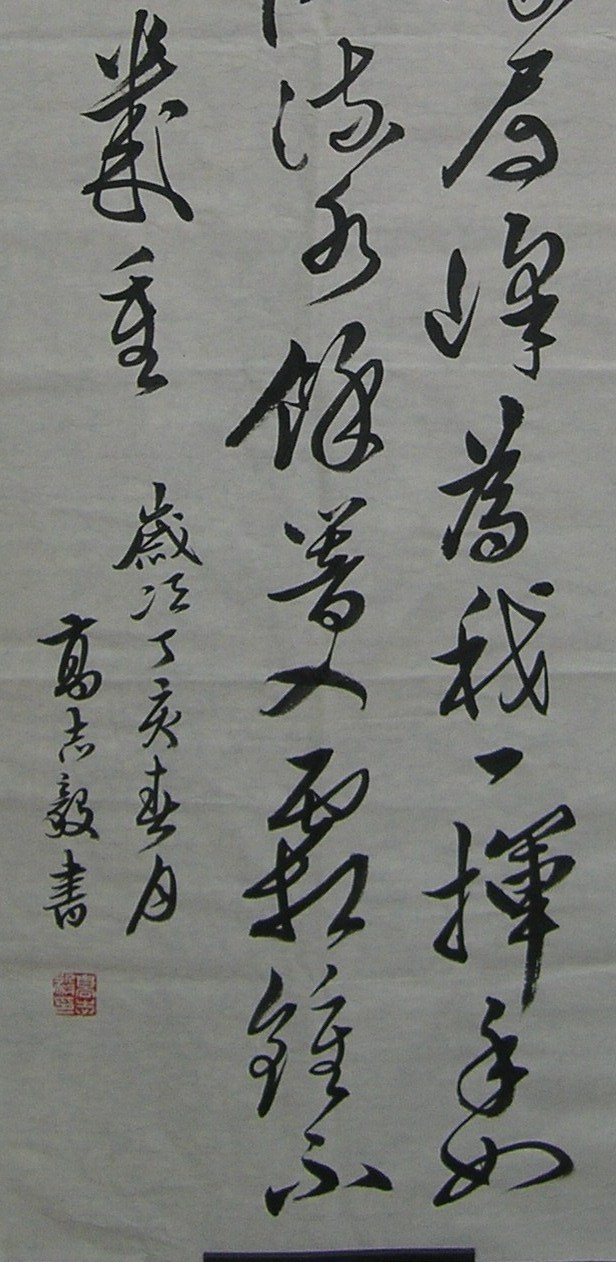 眉峰為我一揮手如
流水餘響入霜鍾不
幾重
歲次丁亥春月
高志毅書